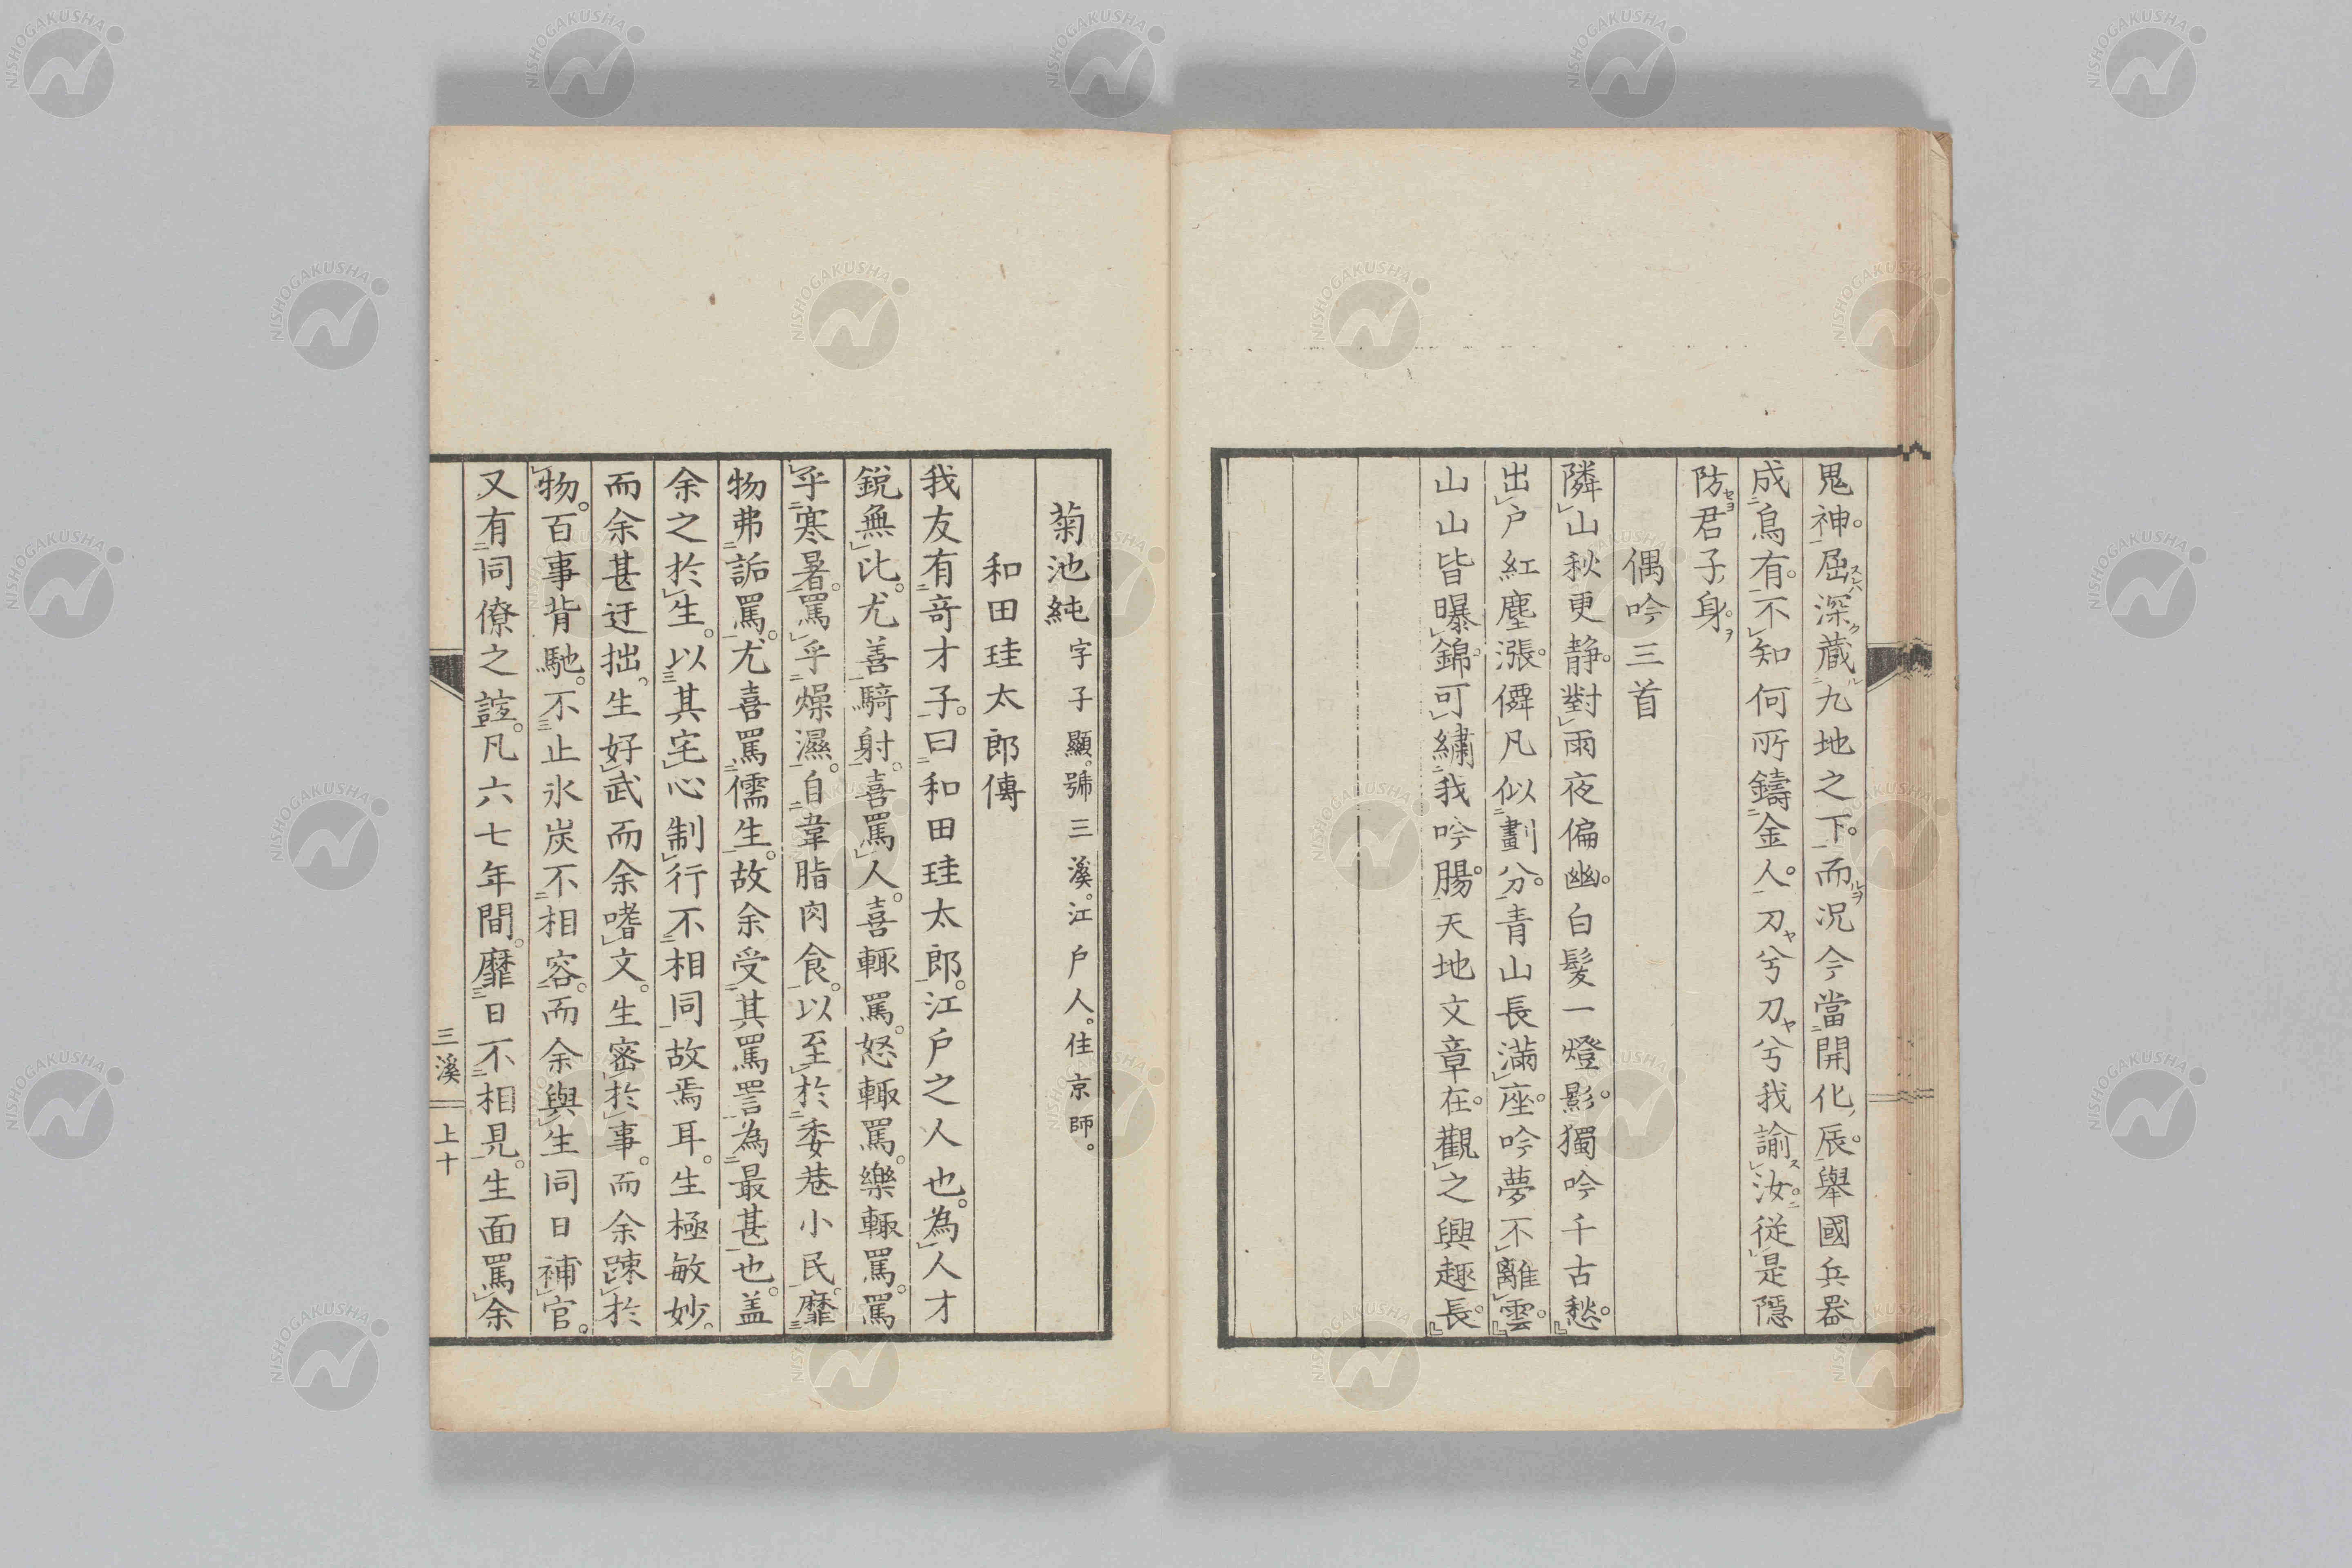 鬼神。屈スレハ深ク蔵ル九地之下。而ルヲ况今當開化辰。舉國兵器
成烏有。不知何所鑄金人。刀ヤ兮刀ヤ兮我諭ス汝ニ。從是隱
防セヨ君子身ヲ。
偶吟三首
隣山秋更静。對雨夜偏幽。白髮一燈影。獨吟千古愁。
出戶紅塵漲。僊凡似劃分。青山長滿座。吟夢不離雲。
山山皆曝錦。可繡我吟腸。天地文章在。觀之興趣長。
菊池純字子顯。號三溪。江戶人。住京師。
和田珪太郎傳
我友有奇才子。曰和田珪太郎。江戶之人也。為人才
鋭無比。尤善騎射。喜罵人。喜輒罵。怒輒罵。樂輒罵。罵
乎寒暑。罵乎燥濕。自韋脂肉食。以至於委巷小民。靡
物弗詬罵。尤喜罵儒生。故余受其罵詈為最甚也。盖
余之於生。以其宅心制行不相同故焉耳。生極敏妙。
而余甚迂拙。生好武而余嗜文。生密於事。而余踈於
物。百事背馳。不止氷炭不相容。而余與生同日補官。
又有同僚之誼。凡六七年間。靡日不相見。生面罵余
三溪 上十
NISHOGAKUSHA